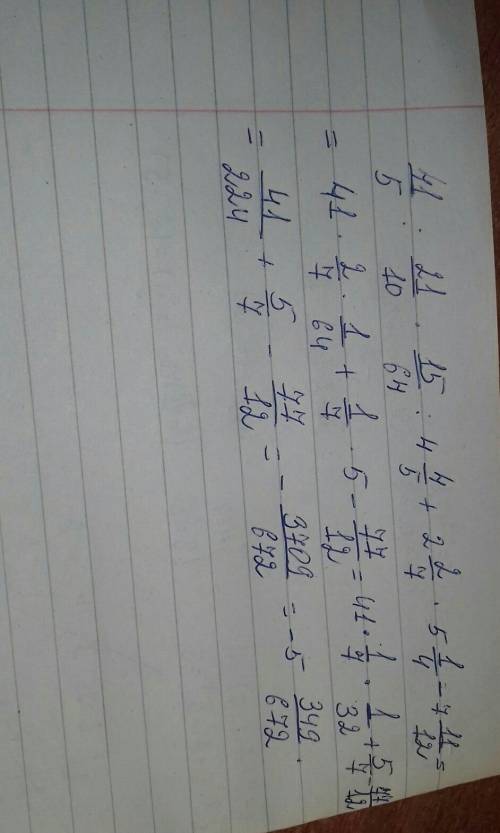 41/5 : 21/10 · 15/64 : 4 4/5 + 2 2/7 · 5 1/4 - 7 11/12 =
= 41 · 2/7 · 1/64 + 1/7 · 5 - 77/12 = 41 · 1/7 · 1/32 + 5/7 - 77/12
= 41/224 + 5/7 - 77/12 = - 3709/672 = -5 349/672.